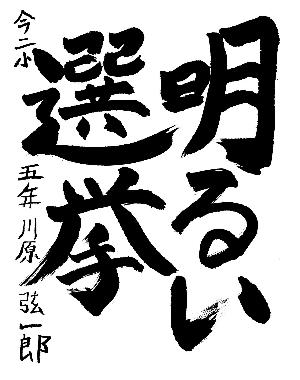 明るい
選挙
今二小 五年 川原弦一郎